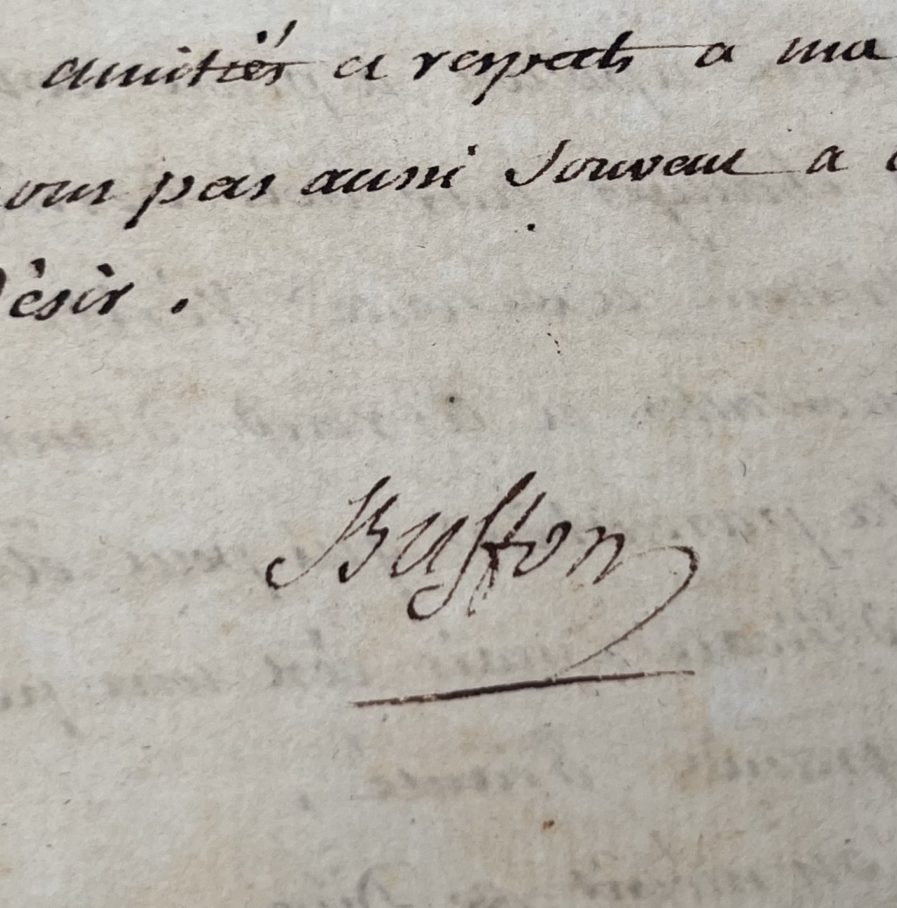 amitiés et respects a ma
vous pas aussi Souvent a
désir .
Buffon